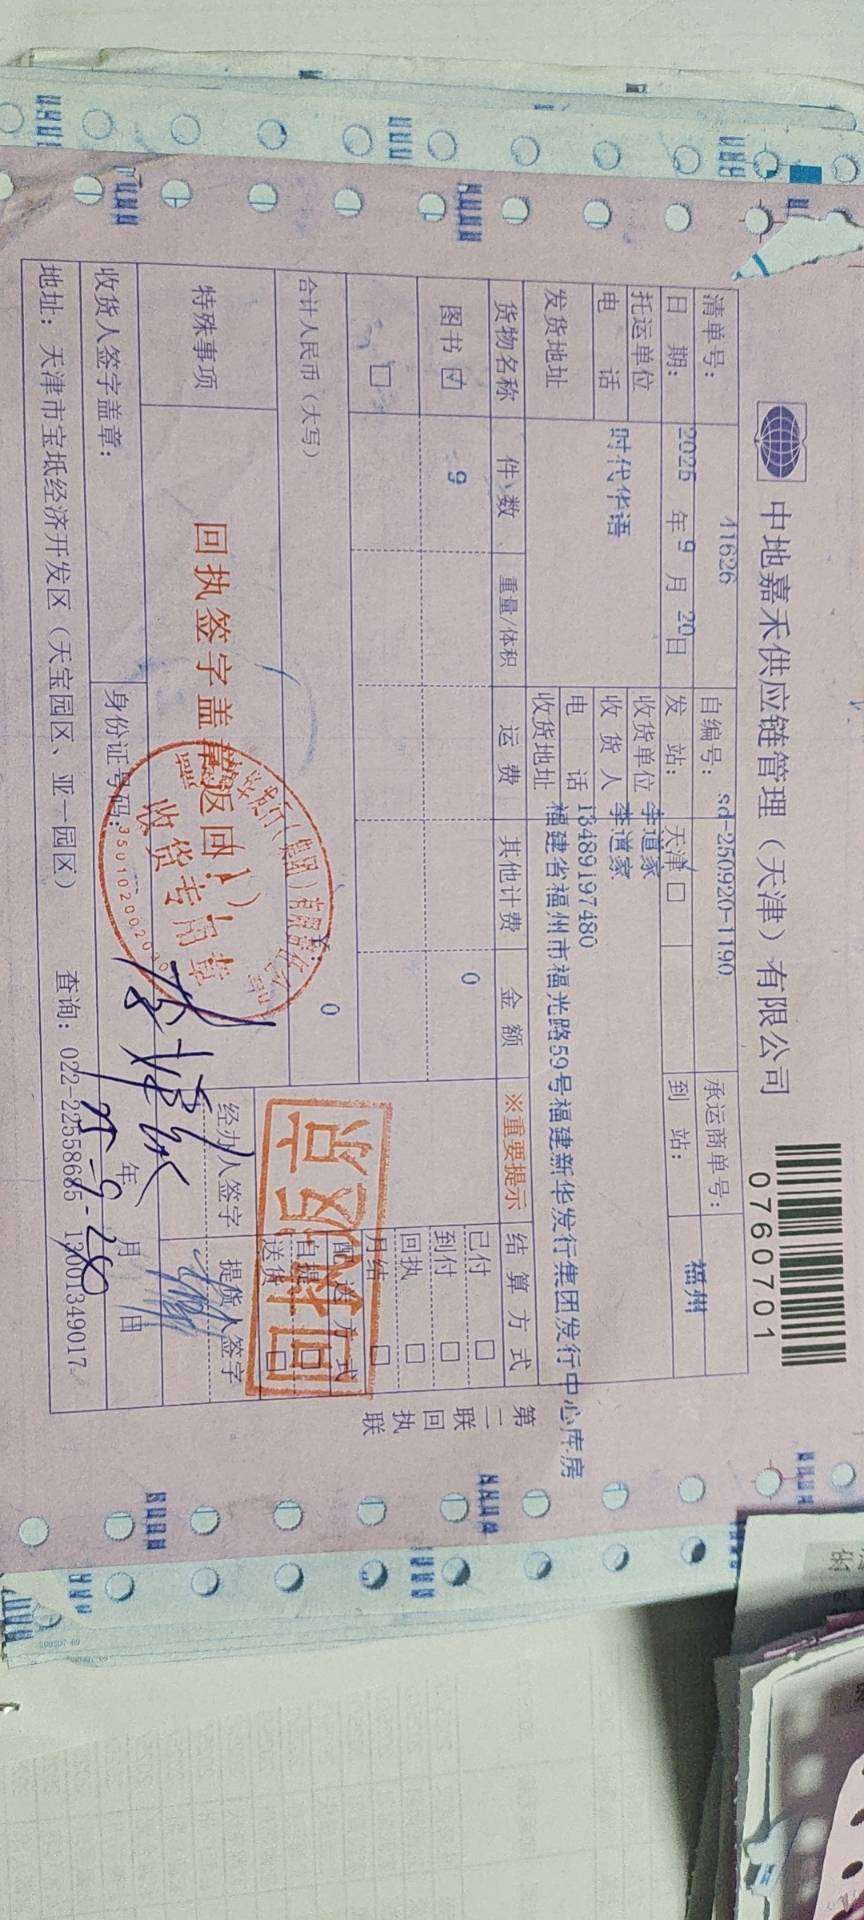 中地嘉禾供应链管理（天津）有限公司
0760701
清单号： 41626 自编号： sd-250920-1190 承运商单号：
日 期： 2025 年 9 月 20 日 发 站： 天津 □ 到 站： 福州
托运单位 时代华语 收货单位 李道家
电 话 收 货 人 李道家
发货地址 电 话 13489197480
收货地址 福建省福州市福光路59号福建新华发行集团发行中心库房
货物名称 件 数 重量/体积 运 费 其他计费 金 额 ※重要提示 结 算 方 式
图书 ☑ 9 0 已付 □
到付 □
□ 回执 □
月结 □
合计人民币（大写） 0 配 送 方 式
自提
送货 □
特殊事项 回执签字盖章返回（1）
经办人签字 提货人签字
收货人签字盖章： 身份证号码： 年 月 日
25-9-28
地址：天津市宝坻经济开发区（天宝园区、亚一园区） 查询：022-22558685 13001349017
第二联 回执联
收货专用章
返京
回执